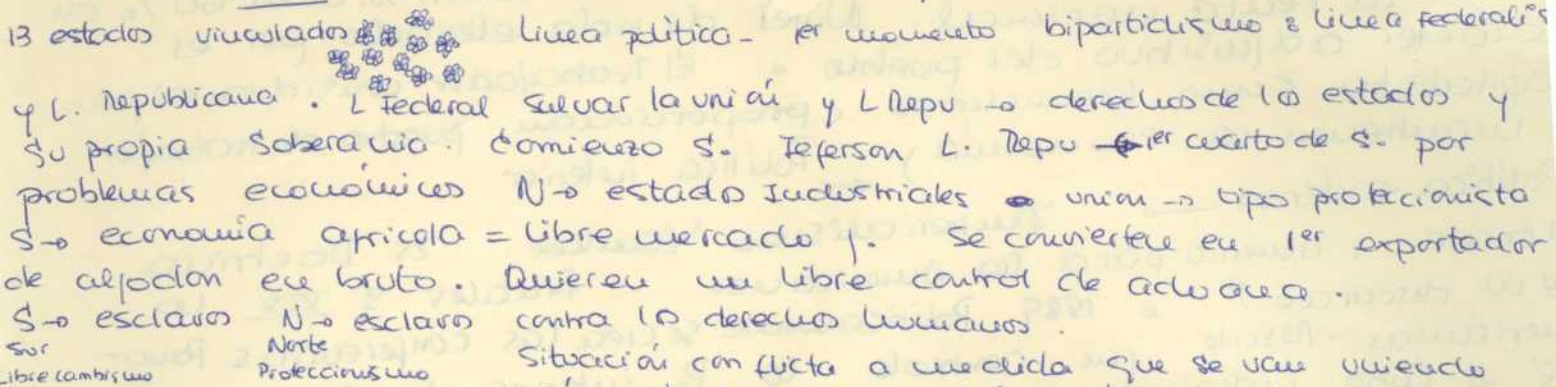 13 estados vinculados Linea política - 1er momento bipartidismo : linea federalis
y L. Republicana . L Federal salvar la unión y L Repu → derechos de los estados y
su propia Soberanía. Comienzo S. Jeferson L. Repu 1er cuarto de s. por
problemas económicos N→ estado Industriales unión → tipo proteccionista
S→ economía agrícola = libre mercado y. Se convierten en 1er exportador
de algodón en bruto. Quieren un libre control de aduana.
S→ esclavos N→ esclavo contra lo derechos humanos.
Sur Norte Situación conflicta a medida que se van uniendo
Librecambismo Proteccionismo